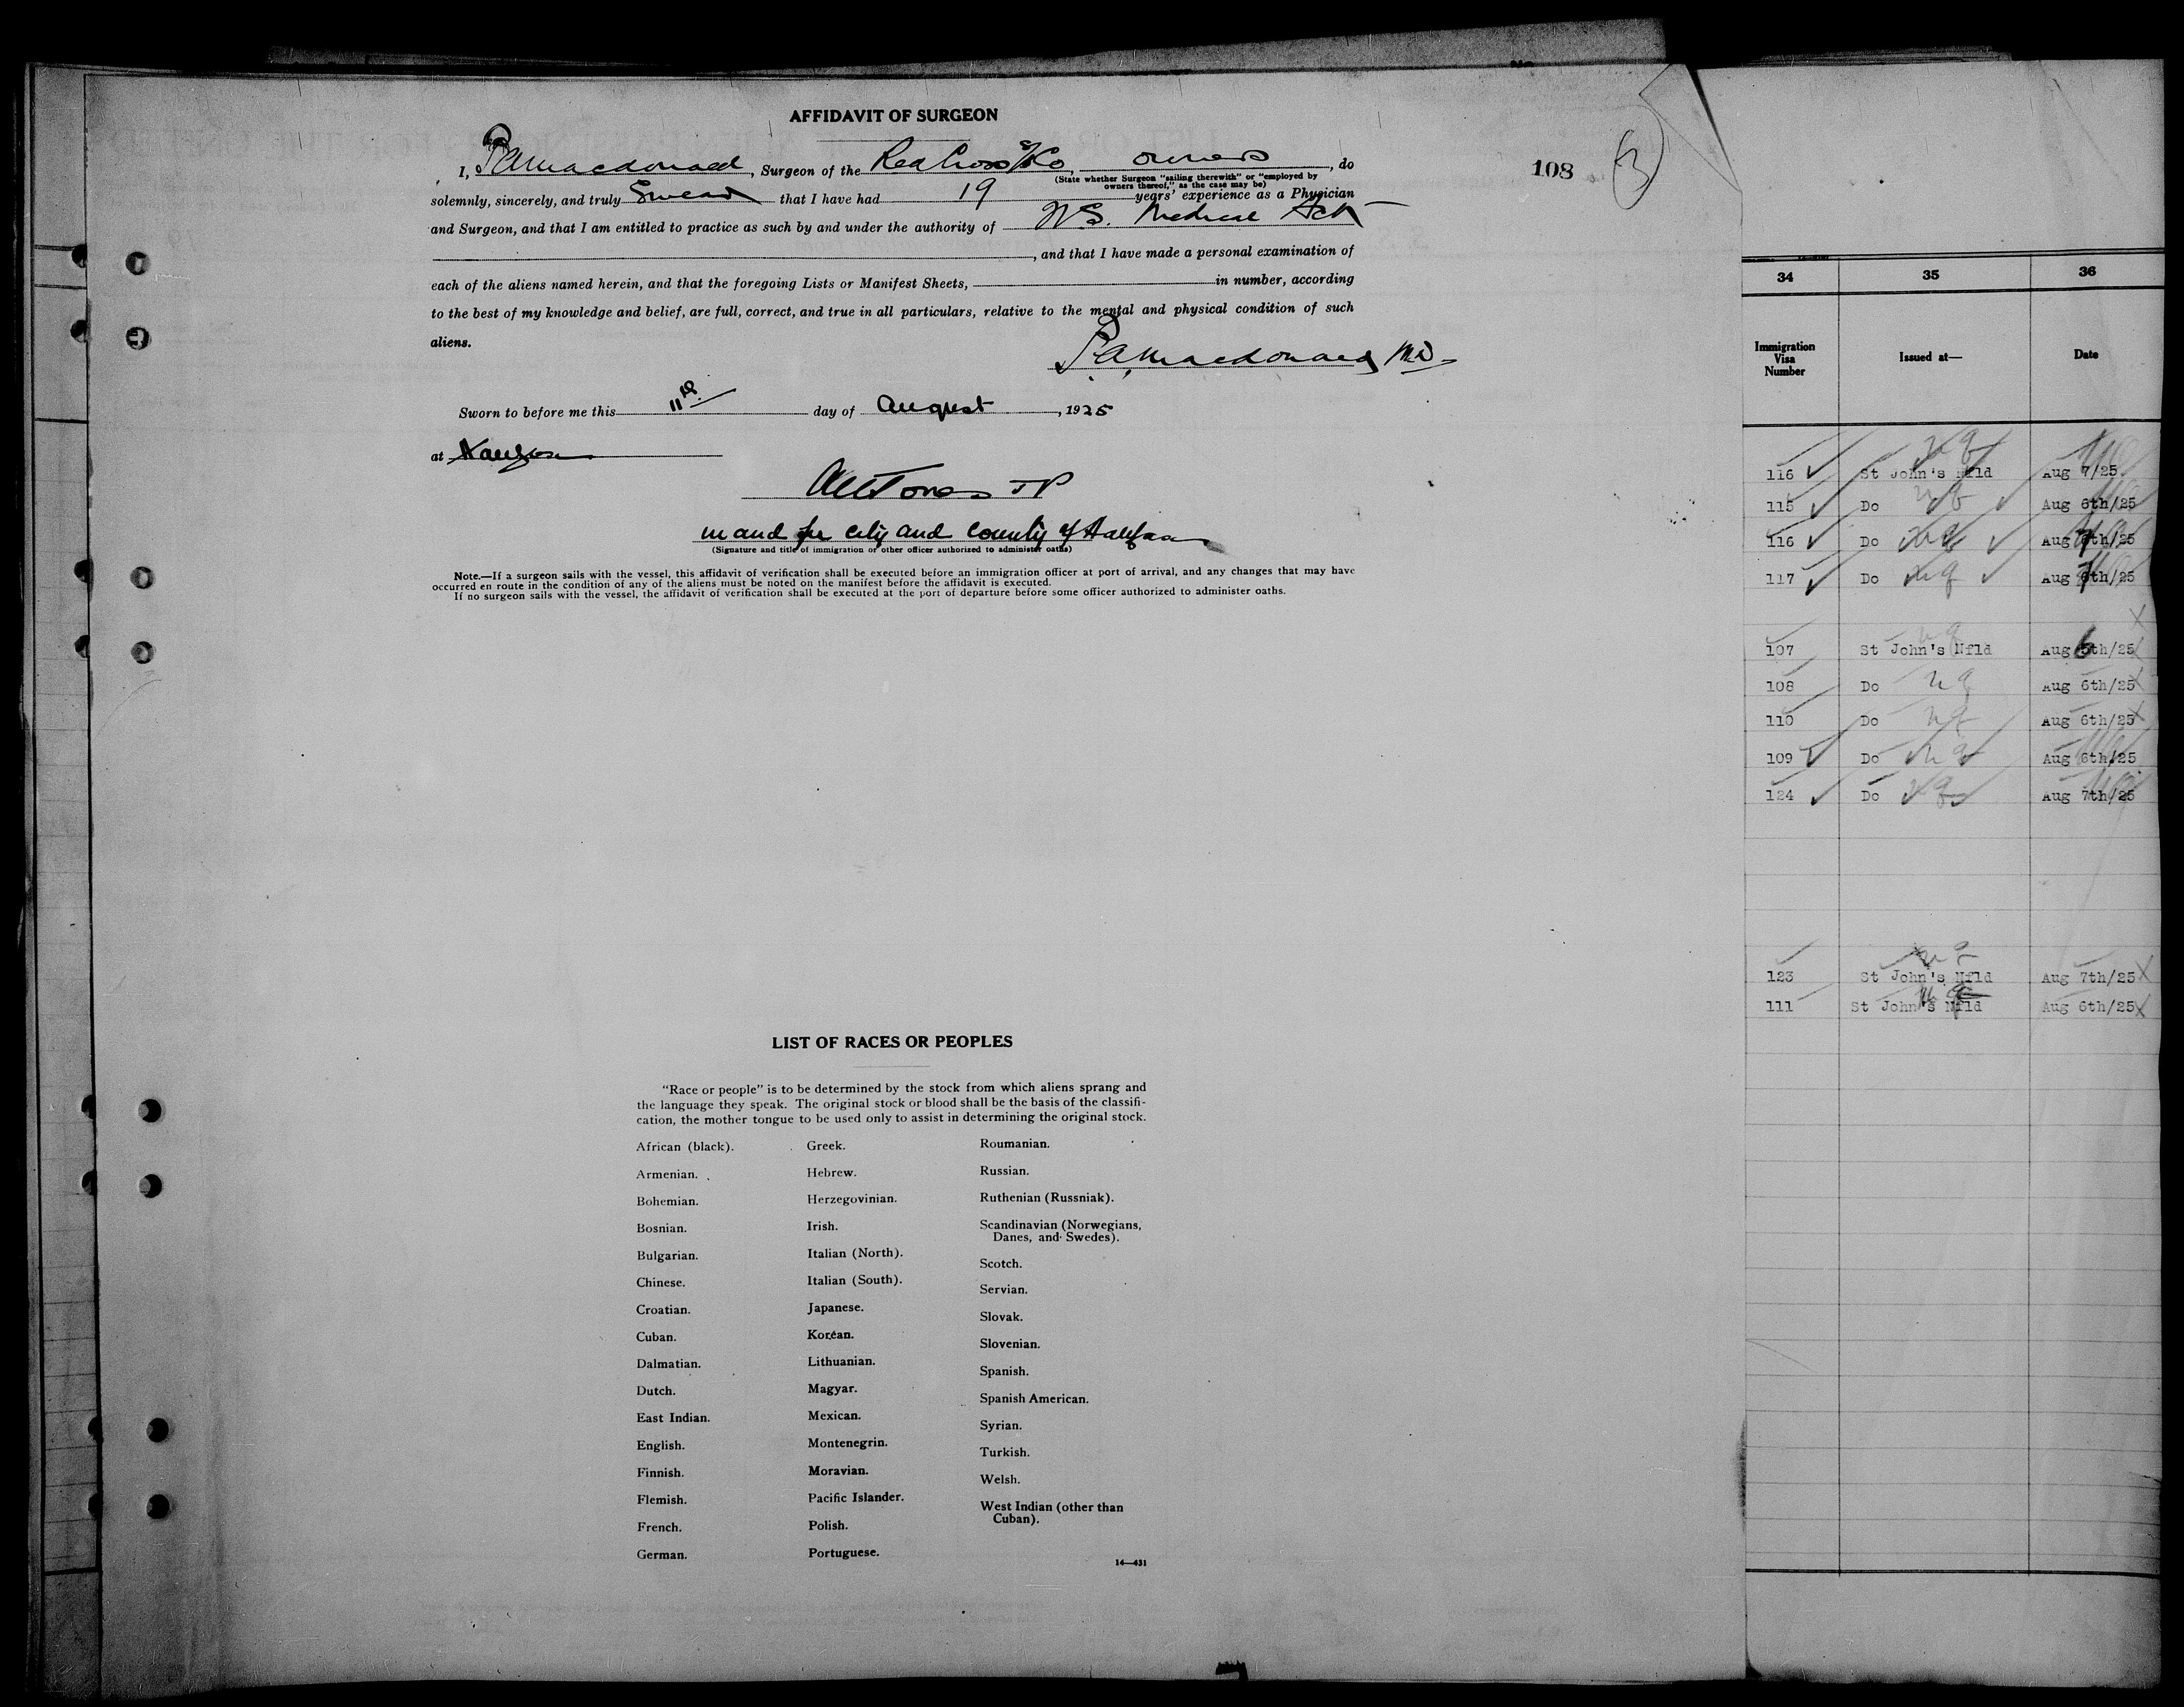 AFFIDAVIT OF SURGEON
I, P A Macdonald, Surgeon of the Red Cross S/S Co, owners, do
(State whether Surgeon "sailing therewith" or "employed by
owners thereof," as the case may be)
solemnly, sincerely, and truly Swear that I have had 19 years' experience as a Physician
and Surgeon, and that I am entitled to practice as such by and under the authority of N.S. Medical Act
, and that I have made a personal examination of
each of the aliens named herein, and that the foregoing Lists or Manifest Sheets, in number, according
to the best of my knowledge and belief, are full, correct, and true in all particulars, relative to the mental and physical condition of such
aliens.
P A Macdonald MD
Sworn to before me this 11th day of August, 1925
at Halifax
Jones JP
in and for City and County of Halifax
(Signature and title of immigration or other officer authorized to administer oaths)
Note.—If a surgeon sails with the vessel, this affidavit of verification shall be executed before an immigration officer at port of arrival, and any changes that may have
occurred en route in the condition of any of the aliens must be noted on the manifest before the affidavit is executed.
If no surgeon sails with the vessel, the affidavit of verification shall be executed at the port of departure before some officer authorized to administer oaths.
LIST OF RACES OR PEOPLES
"Race or people" is to be determined by the stock from which aliens sprang and
the language they speak. The original stock or blood shall be the basis of the classifi-
cation, the mother tongue to be used only to assist in determining the original stock.
African (black).
Armenian.
Bohemian.
Bosnian.
Bulgarian.
Chinese.
Croatian.
Cuban.
Dalmatian.
Dutch.
East Indian.
English.
Finnish.
Flemish.
French.
German.
Greek.
Hebrew.
Herzegovinian.
Irish.
Italian (North).
Italian (South).
Japanese.
Korean.
Lithuanian.
Magyar.
Mexican.
Montenegrin.
Moravian.
Pacific Islander.
Polish.
Portuguese.
Roumanian.
Russian.
Ruthenian (Russniak).
Scandinavian (Norwegians,
Danes, and Swedes).
Scotch.
Servian.
Slovak.
Slovenian.
Spanish.
Spanish American.
Syrian.
Turkish.
Welsh.
West Indian (other than
Cuban).
14—431
108
3
34 35 36
Immigration
Visa
Number
Issued at—
Date
116 St John's Nfld nq Aug 7/25
115 Do nq Aug 6th/25
116 Do nq Aug 7th/25
117 Do nq Aug 7th/25
107 St John's Nfld nq Aug 6th/25
108 Do nq Aug 6th/25
110 Do nq Aug 6th/25
109 Do nq Aug 6th/25
124 Do nq Aug 7th/25
123 St John's Nfld nq Aug 7th/25
111 St John's Nfld nq Aug 6th/25